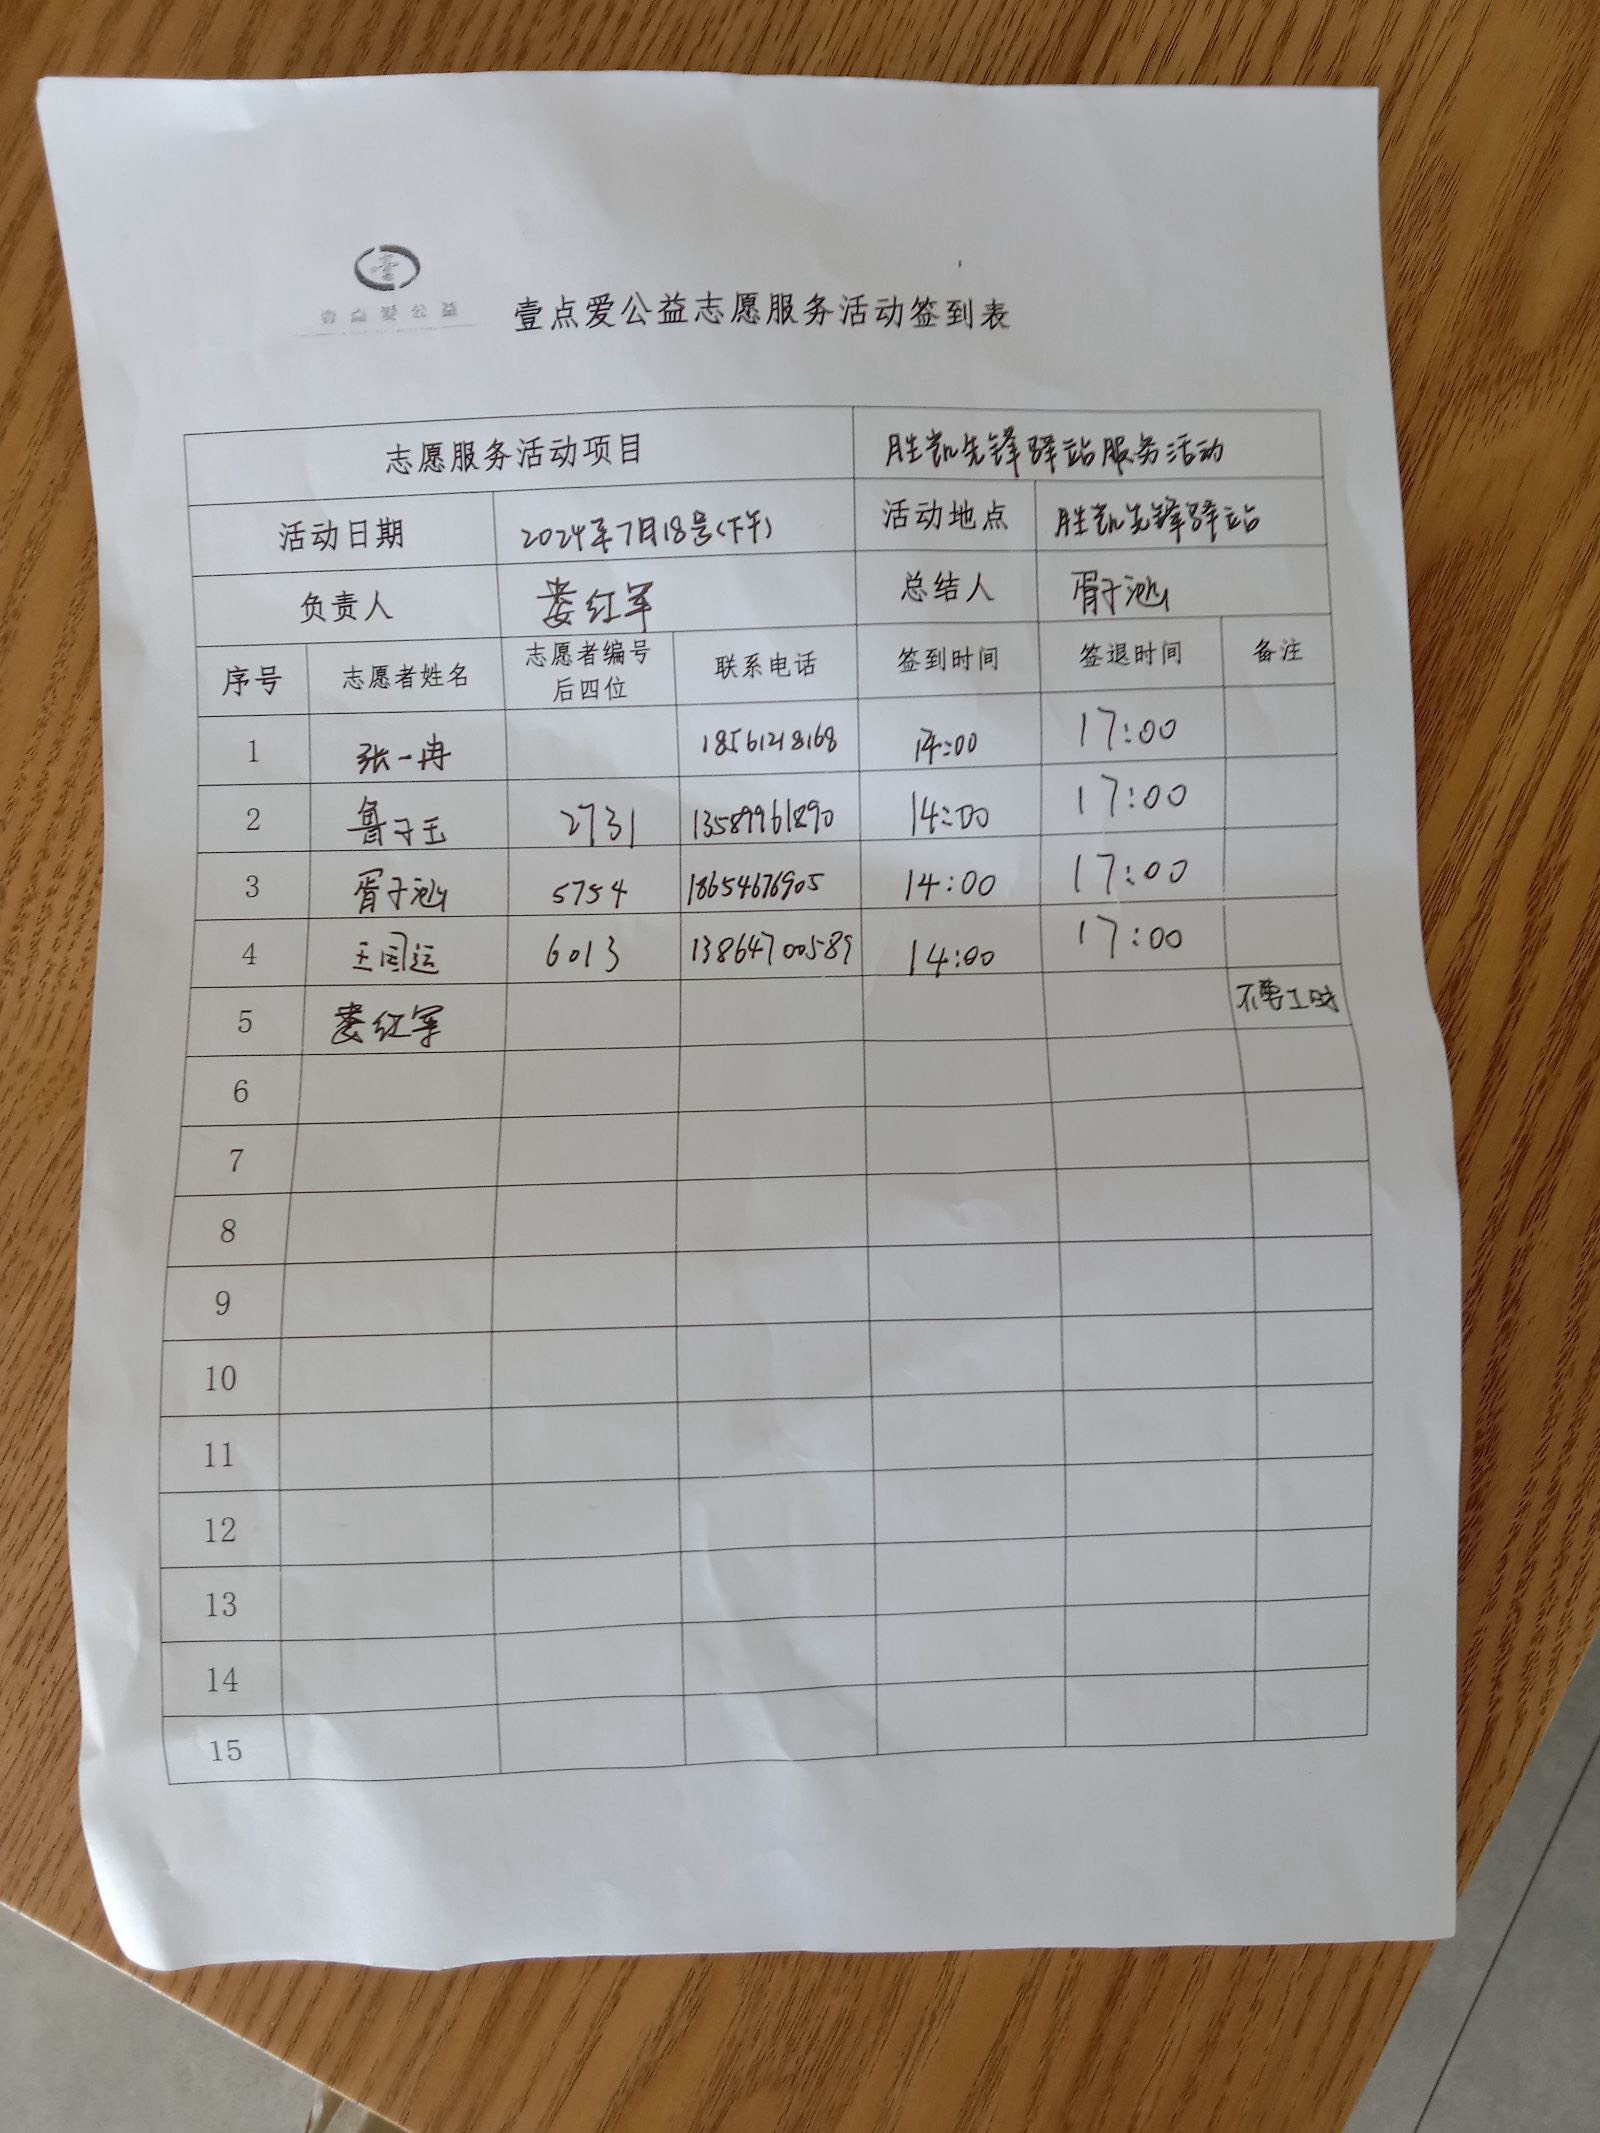 壹
壹点爱公益
壹点爱公益志愿服务活动签到表
志愿服务活动项目 胜凯先锋驿站服务活动
活动日期 2024年7月18号(下午) 活动地点 胜凯先锋驿站
负责人 娄红军 总结人 胥子涵
序号 志愿者姓名 志愿者编号后四位 联系电话 签到时间 签退时间 备注
1 张一冉 18561218168 14:00 17:00
2 鲁子玉 2731 13589961890 14:00 17:00
3 胥子涵 5754 18654676905 14:00 17:00
4 王国运 6013 13864700589 14:00 17:00
5 娄红军 不要工时
6
7
8
9
10
11
12
13
14
15